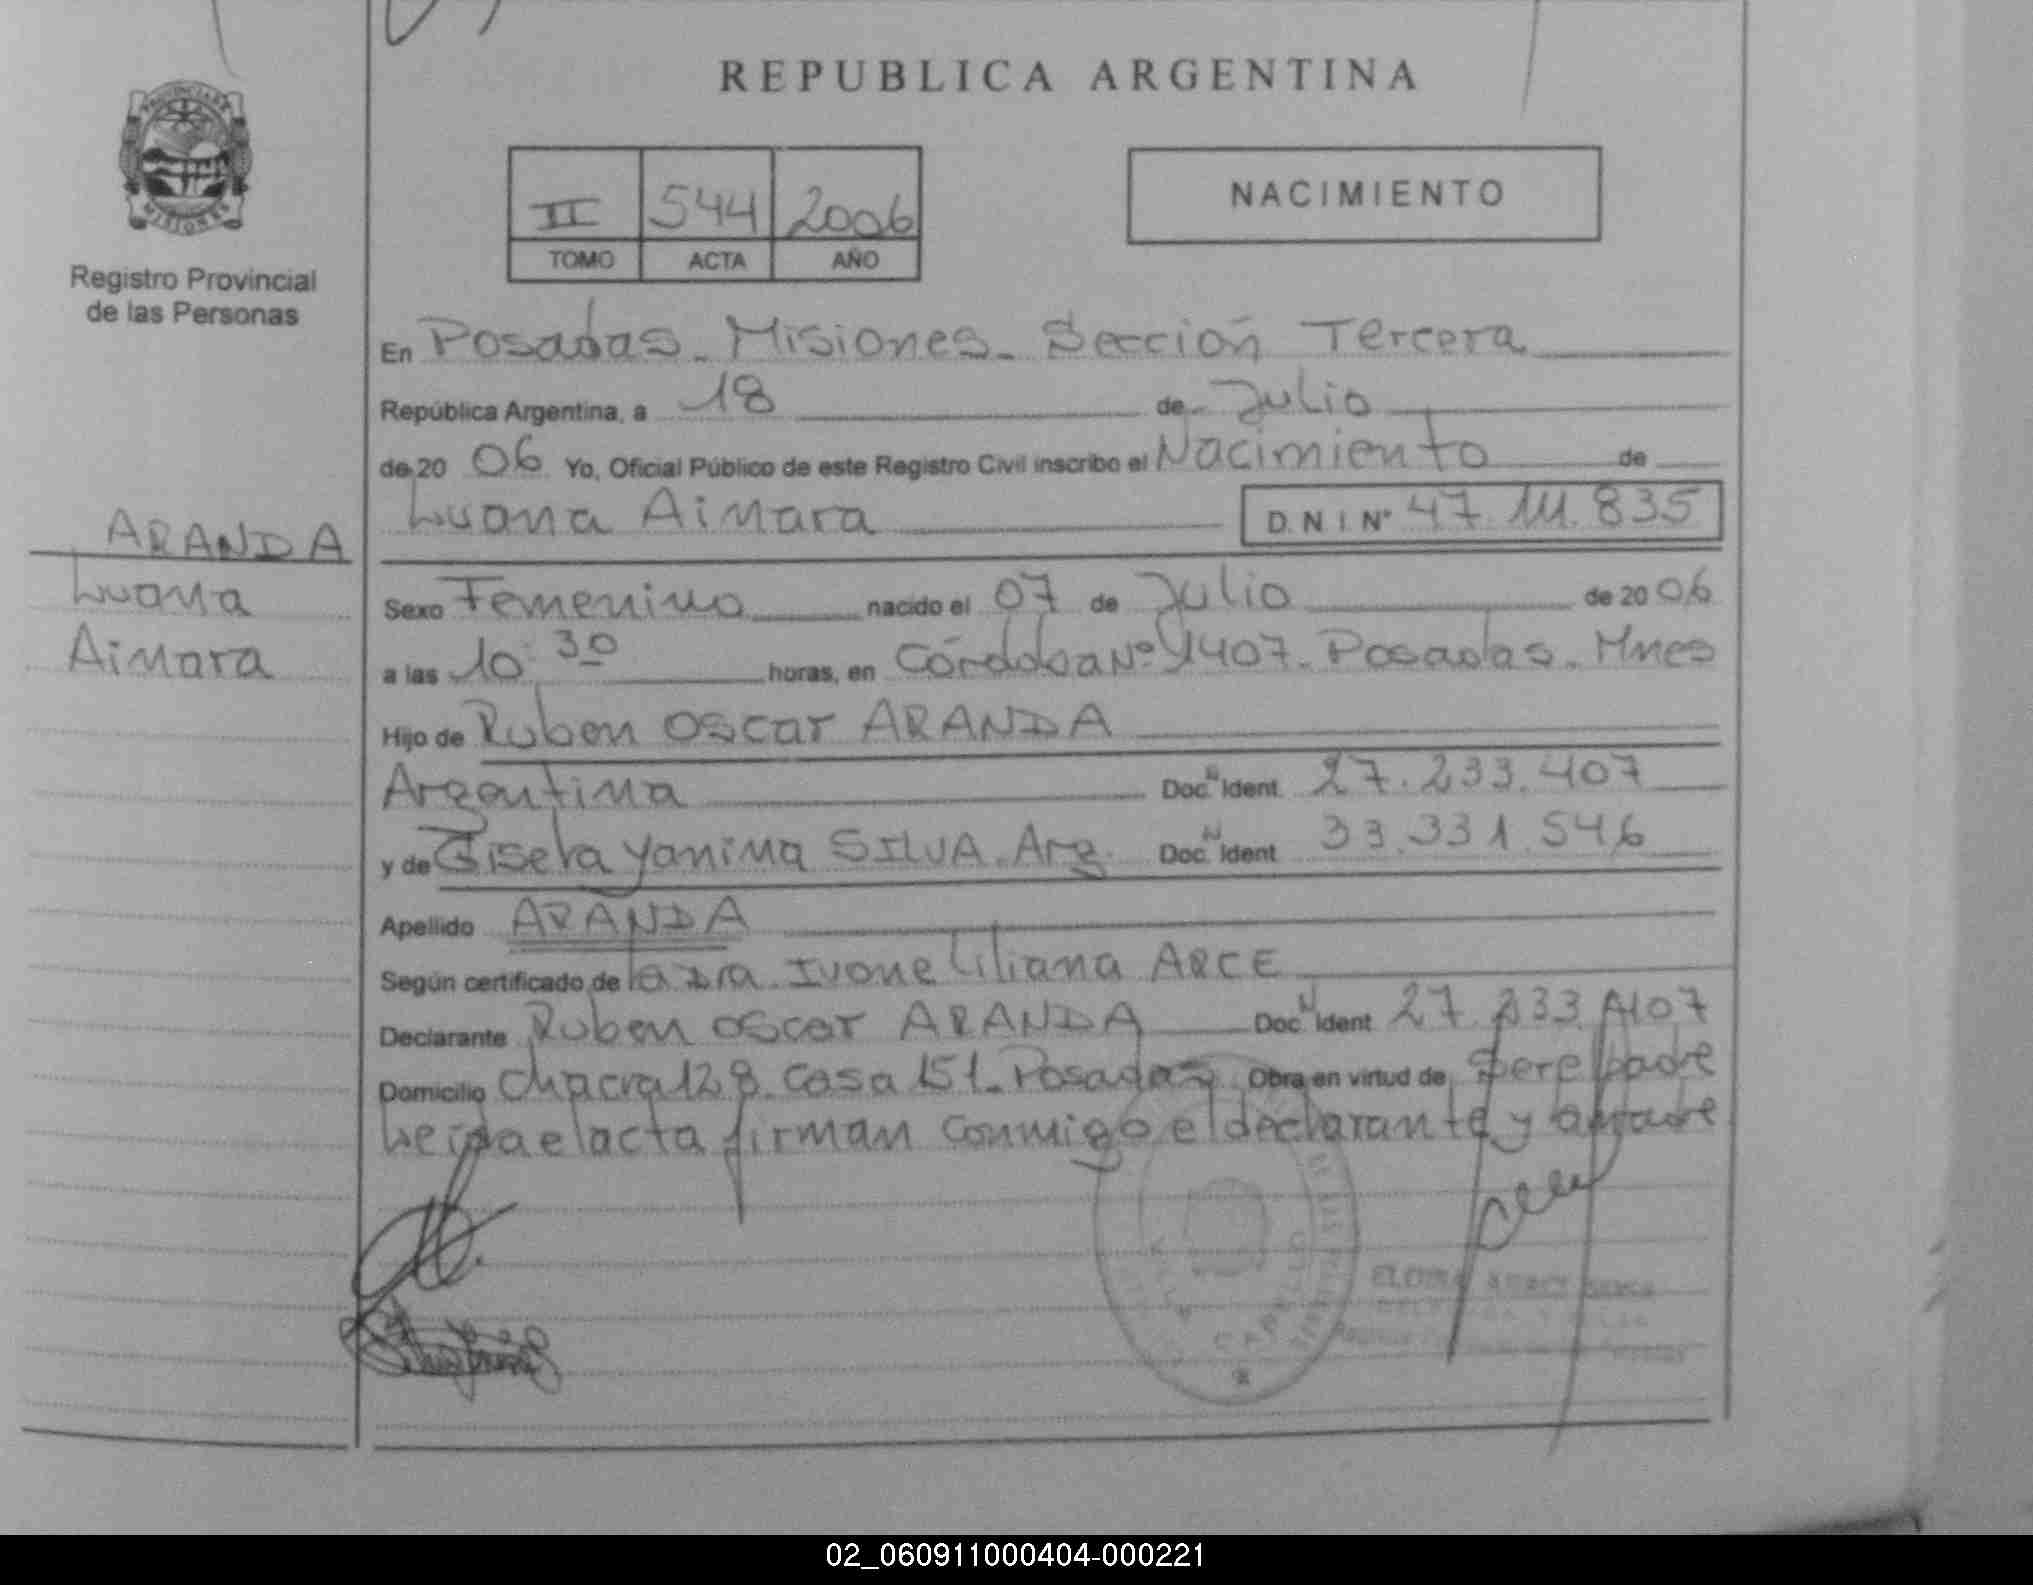 REPUBLICA ARGENTINA
PROVINCIA DE
MISIONES
Registro Provincial
de las Personas
II 544 2006
TOMO ACTA AÑO
NACIMIENTO
En Posadas - Misiones - Sección Tercera
República Argentina, a 18 de Julio
de 20 06 Yo, Oficial Público de este Registro Civil inscribo el Nacimiento de
Luana Aimara D.N.I Nº 47.111.835
ARANDA
Luana
Aimara
Sexo Femenino nacido el 07 de Julio de 20 06
a las 10:30 horas, en Córdoba Nº 1407 - Posadas - Mnes
Hijo de Ruben Oscar ARANDA
Argentina Doc. N Ident. 27.233.407
y de Gisela Yanina SILVA. Arg. Doc. N Ident. 33.331.546
Apellido ARANDA
Según certificado de la Dra. Ivone Liliana ARCE
Declarante Ruben Oscar ARANDA Doc. N Ident. 27.233.407
Domicilio Chacra 128. Casa 151 - Posadas Obra en virtud de Ser el padre
Leida el acta firman conmigo el declarante y la madre
02_060911000404-000221